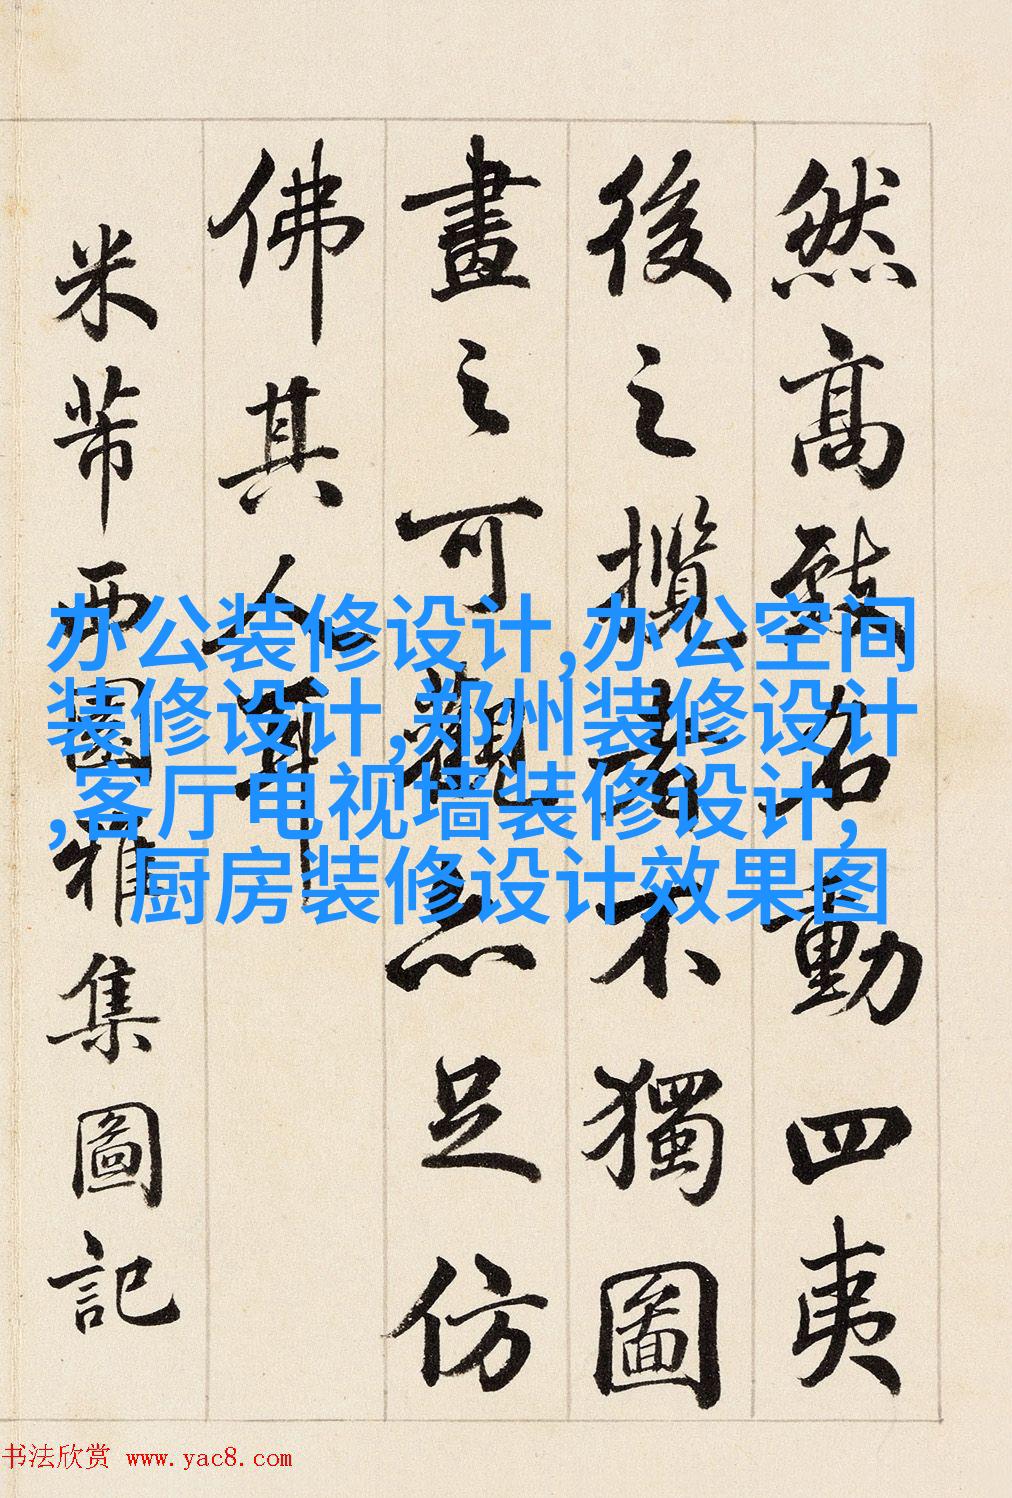 然高致名動四夷
後之攬者不獨圖
畫之可觀亦足仿
佛其人耳
米芾西園雅集圖記
办公装修设计,办公空间
装修设计,郑州装修设计
,客厅电视墙装修设计,
厨房装修设计效果图
书法欣赏 www.yac8.com